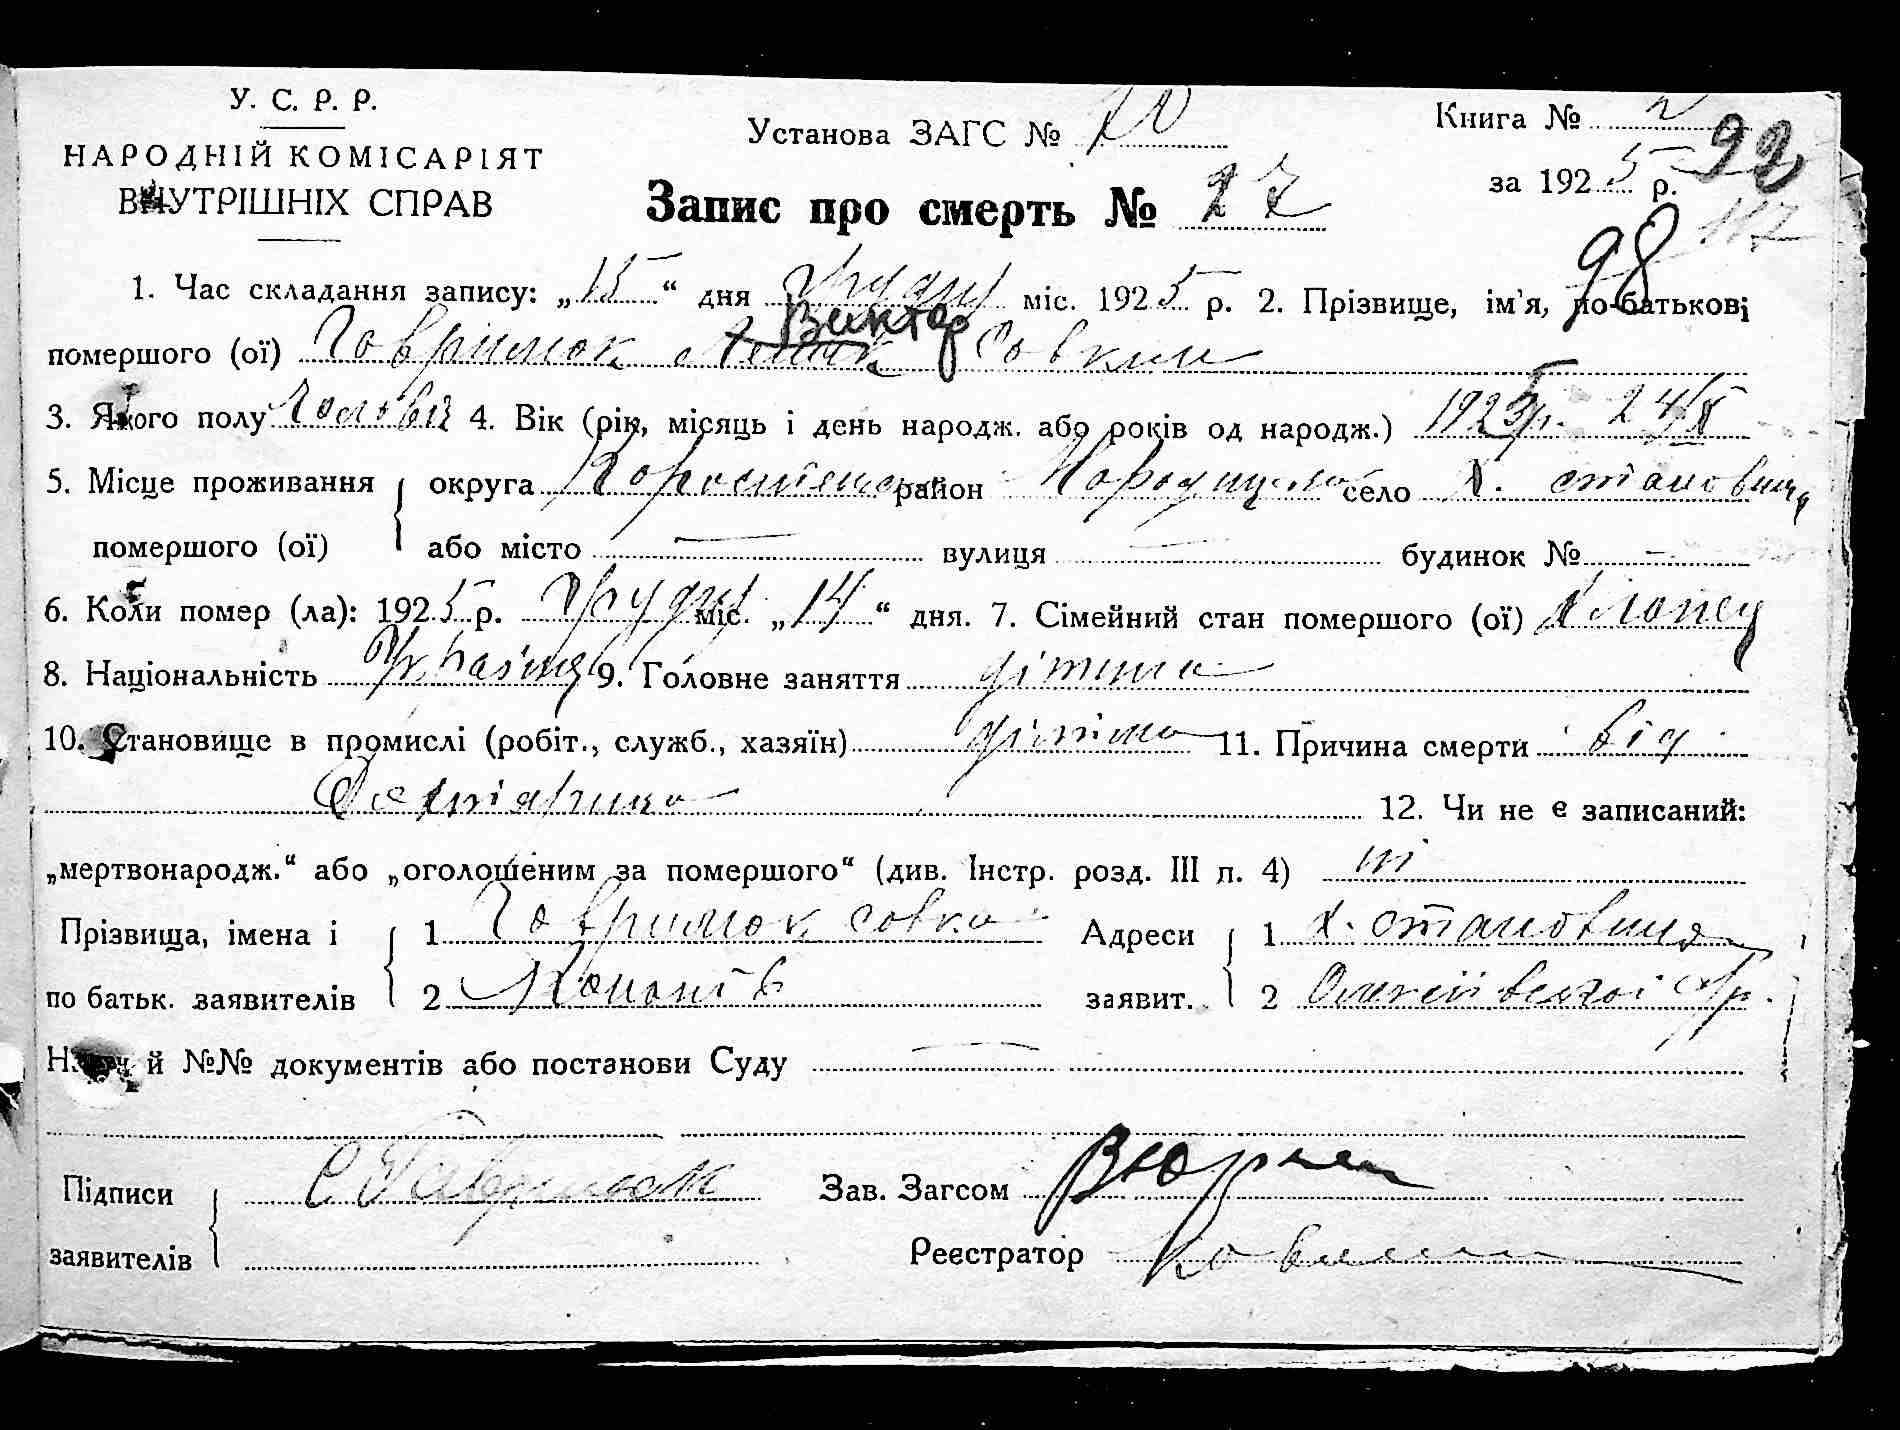 У. С. Р. Р.
НАРОДНІЙ КОМІСАРІЯТ
ВНУТРІШНІХ СПРАВ
Установа ЗАГС №
Книга № 2
за 1925 р.
92
117
98
Запис про смерть № 27
1. Час складання запису: „15“ дня грудня міс. 1925 р. 2. Прізвище, ім'я, по-батькові
Виктор
помершого (ої) Гаврилюк Совкин
3. Якого полу чоловіч 4. Вік (рік, місяць і день народж. або років од народж.) 1925 р. 24/X
5. Місце проживання округа Коростенська район Народицьк село х. становище
помершого (ої) або місто — вулиця — будинок № —
6. Коли помер (ла): 1925 р. грудня міс. „14“ дня. 7. Сімейний стан помершого (ої) хлопец
8. Національність Україн 9. Головне заняття дітина
10. Становище в промислі (робіт., служб., хазяїн) дітина 11. Причина смерти від
12. Чи не є записаний:
„мертвонародж.“ або „оголошеним за помершого“ (див. Інстр. розд. III п. 4) ні
Прізвища, імена і 1 Гаврилюк совка Адреси 1 х. становище
по батьк. заявителів 2 заявит. 2
Назвч й №№ документів або постанови Суду —
Підписи С Гаврилюк Зав. Загсом
заявителів Реєстратор